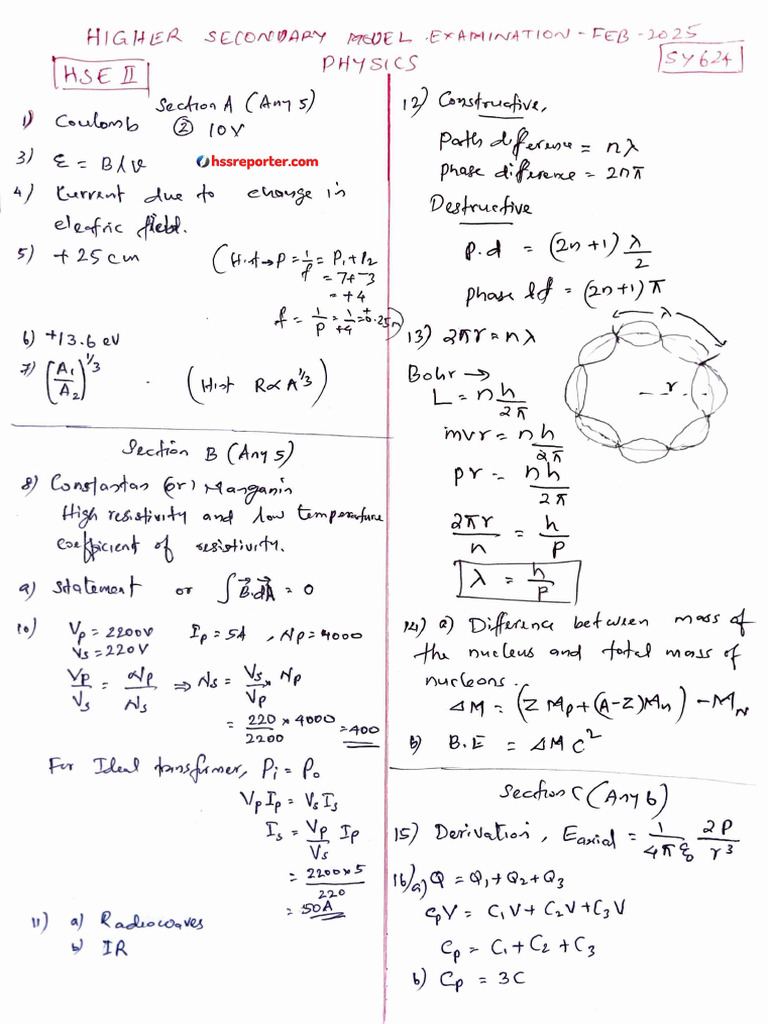 HIGHER SECONDARY MODEL EXAMINATION - FEB - 2025
HSE II
PHYSICS
SY624
Section A (Any 5)
1) Coulomb ② 10V
3) Ɛ = Blv
hssreporter.com
4) Current due to change in
electric field.
5) + 25 cm (Hint → P = 1/f = P₁ + P₂
= 7 + -3
= +4
f = 1/P = 1/+4 = +0.25m)
6) +13.6 eV
7) (A₁/A₂)^1/3 (Hint R ∝ A^1/3)
Section B (Any 5)
8) Constantan (or) Manganin
High resistivity and low temperature
coefficient of resistivity.
9) Statement or ∫B⃗.dA⃗ = 0
10) Vp = 2200V Ip = 5A , Np = 4000
Vs = 220V
Vp/Vs = Np/Ns ⇒ Ns = Vs/Vp × Np
= 220/2200 × 4000 = 400
For Ideal transformer, Pi = Po
VpIp = VsIs
Is = Vp/Vs Ip
= 2200×5/220
= 50A
11) a) Radiowaves
b) IR
12) Constructive,
Path difference = nλ
phase difference = 2nπ
Destructive
p.d = (2n+1) λ/2
phase df = (2n+1) π
13) 2πr = nλ
λ
r
Bohr →
L = n h/2π
mvr = n h/2π
pr = n h/2π
2πr/n = h/p
λ = h/p
14) a) Difference between mass of
the nucleus and total mass of
nucleons.
ΔM = (Z Mp + (A-Z)Mn) - MN
b) B.E = ΔMC²
Section C (Any 6)
15) Derivation, Eaxial = 1/4πε₀ 2P/r³
16) a) Q = Q₁ + Q₂ + Q₃
CpV = C₁V + C₂V + C₃V
Cp = C₁ + C₂ + C₃
b) Cp = 3C